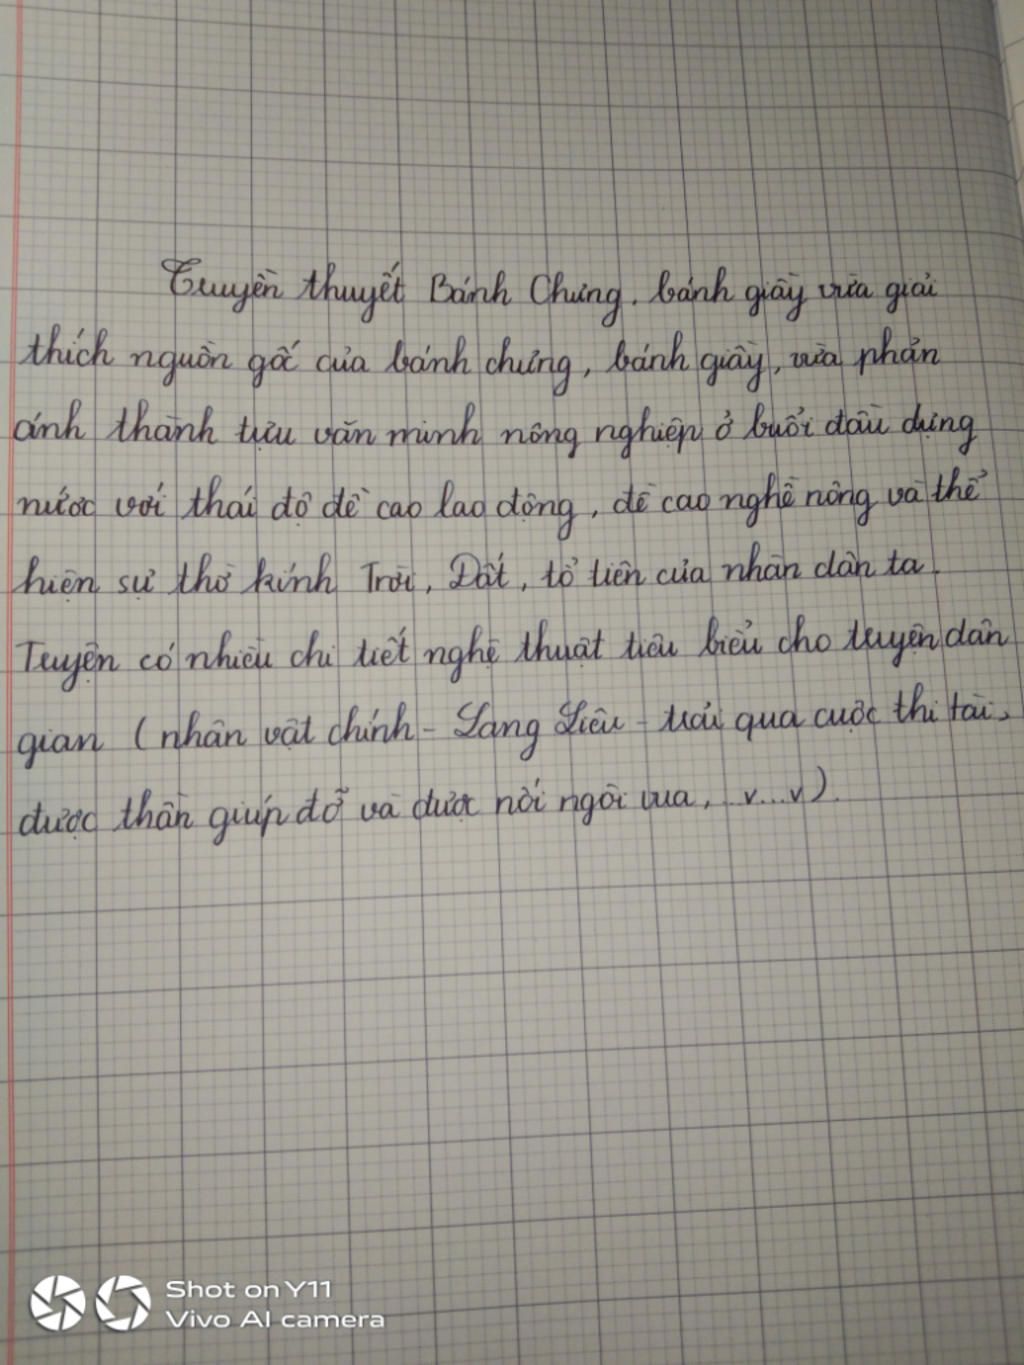 Truyền thuyết Bánh Chưng. bánh giầy vừa giải
thích nguồn gố của bánh chưng, bánh giầy, vừa phản
ánh thành tựu văn minh nông nghiệp ở buổi đầu dựng
nước với thái độ đề cao lao động, đề cao nghề nông và thể
hiện sự thờ kính Trời, Đất, tổ tiên của nhân dân ta.
Truyện có nhiều chi tiết nghệ thuật tiêu biểu cho truyện dân
gian (nhân vật chính - Lang Liêu - trải qua cuộc thi tài,
được thần giúp đỡ và được nối ngôi vua, v...v).
Shot on Y11
Vivo AI camera